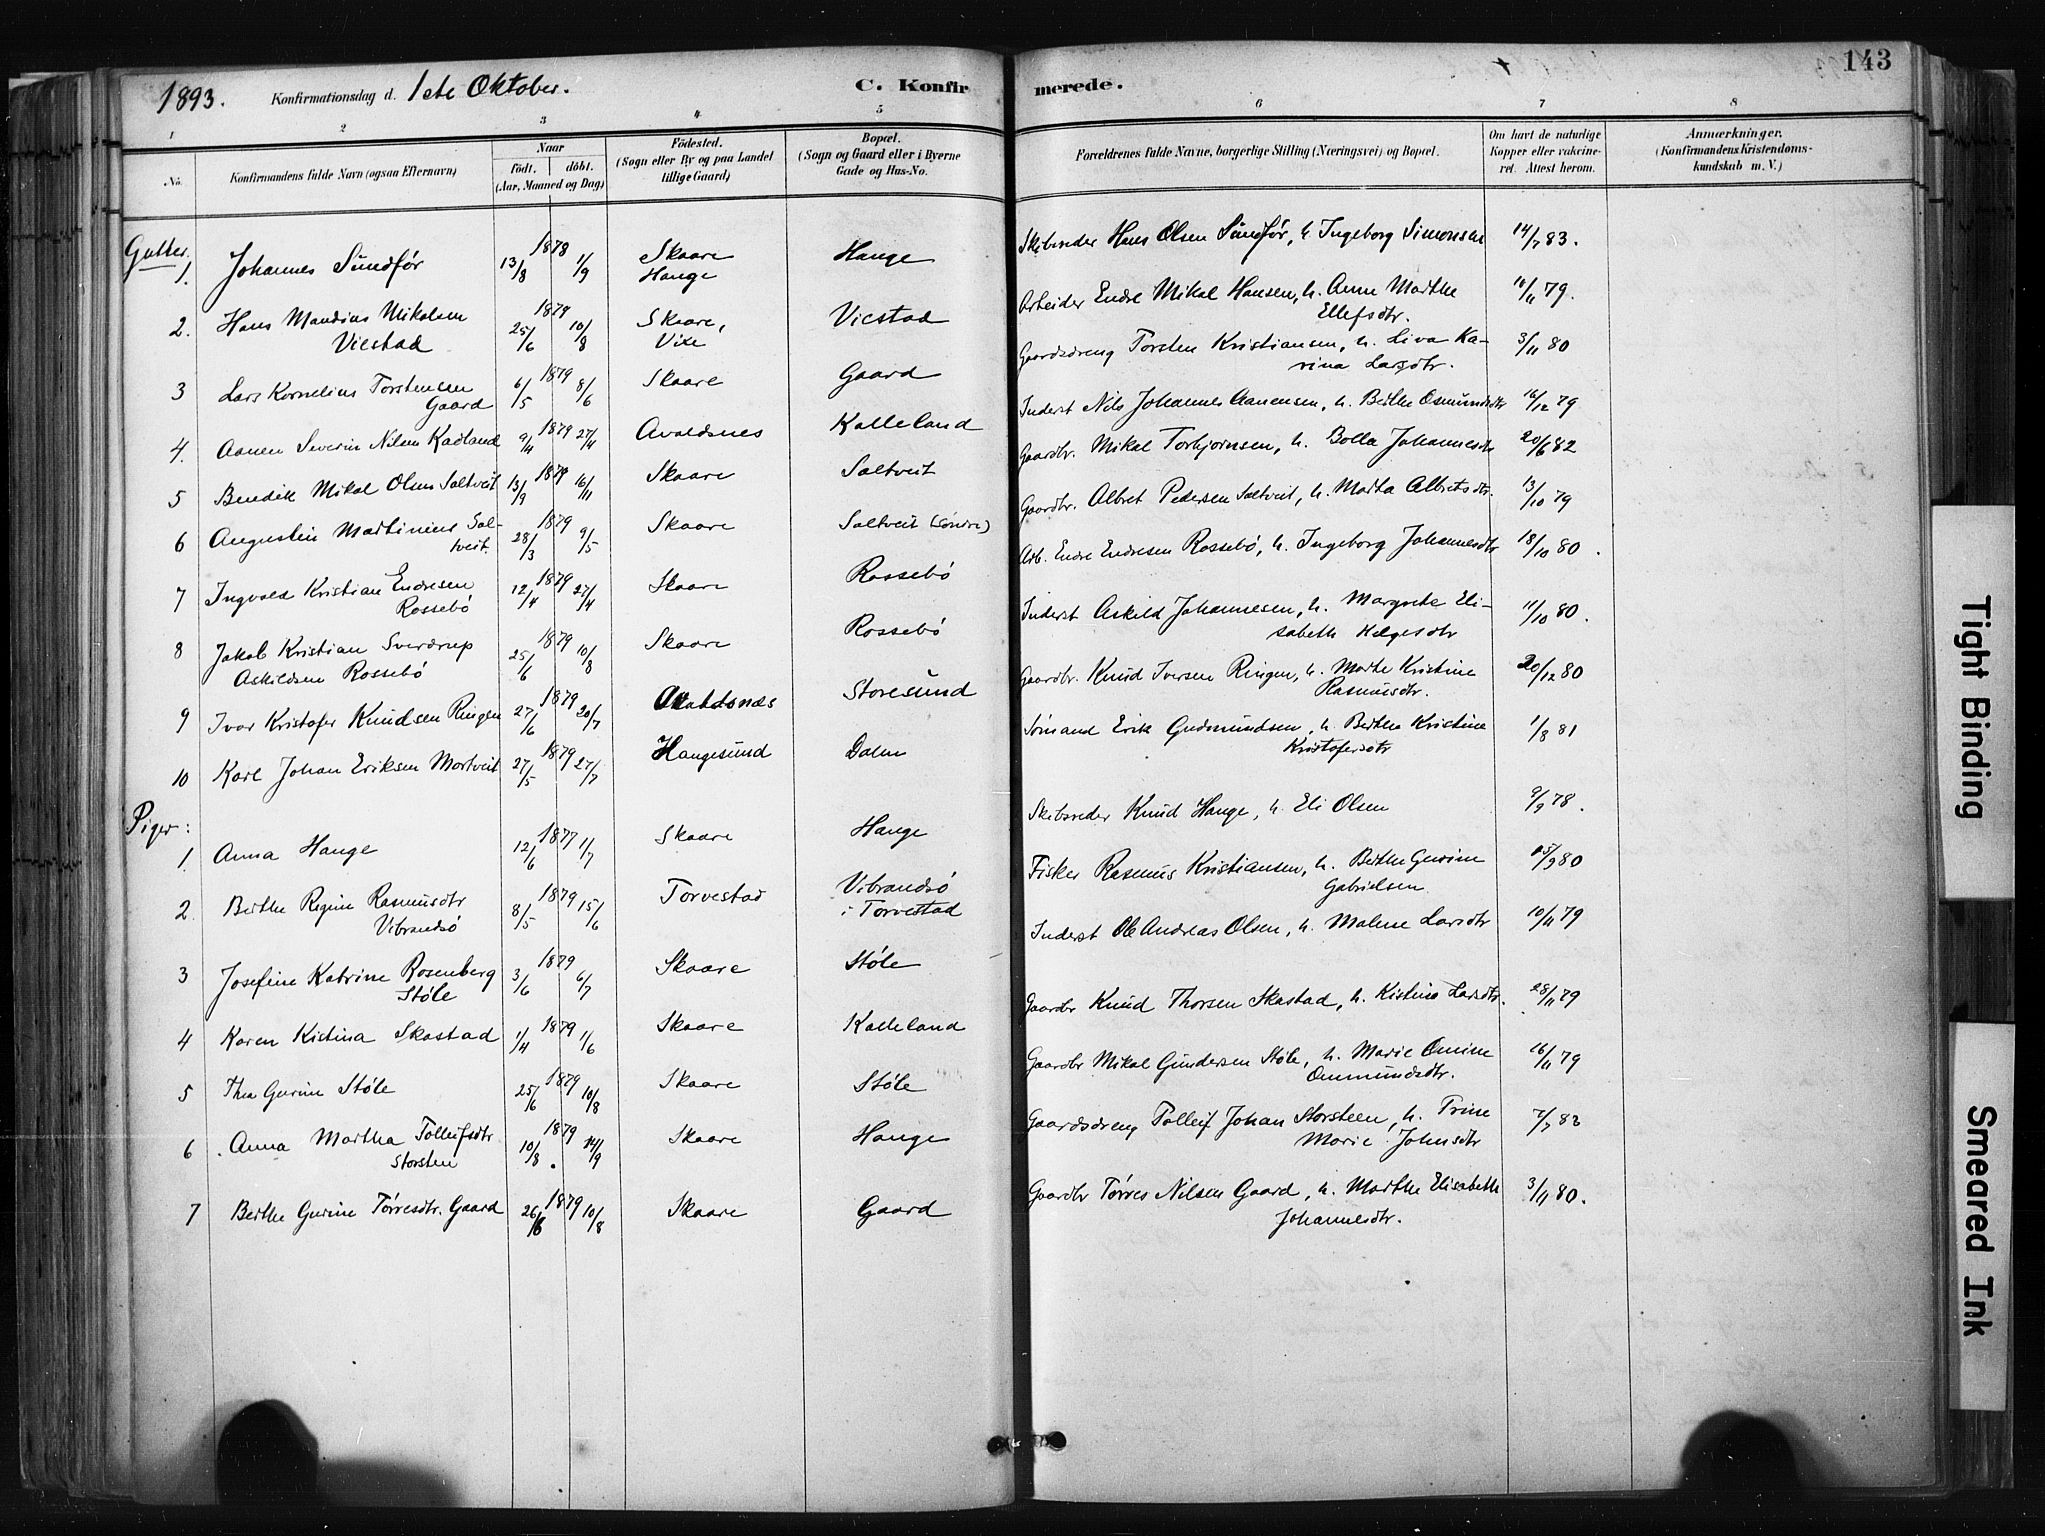 1893. Konfirmationsdag d. 1ste Oktober. C. Konfirmerede. 143
1 2 3 4 5 6 7 8
No. Konfirmandens fulde Navn (ogsaa Efternavn) Naar födt. döbt. (Aar, Maaned og Dag) Födested. (Sogn eller By og paa Landet tillige Gaard) Bopæl. (Sogn og Gaard eller i Byerne Gade og Hus-No. Forældrenes fulde Navne, borgerlige Stilling (Næringsvei) og Bopæl. Om havt de naturlige Kopper eller vakcineret. Attest herom. Anmærkninger. (Konfirmandens Kristendomskundskab m. V.)
Gutter.
1. Johannes Sundför 1878 13/8 1/9 Skaare Hauge Hauge Skibsreder Hans Olsen Sundför, h. Ingeborg Simonsen 14/7 83.
2. Hans Mandius Mikalsen Vicstad 1879 25/6 10/8 Skaare, Vixe Vicstad Arbeider Endre Mikal Hansen, h. Anne Marthe Ellefsdtr. 16/11 79.
3 Lars Kornelius Torstensen Gaard 6/5 1879 8/6 Skaare Gaard Gaardsdreng Torsten Kristiansen, h. Liva Karina Larsdtr. 3/11 80
4. Aanen Severin Nilsen Kadland 9/4 1879 27/4 Avaldsnes Kalleland Inderst Nils Johannes Aanensen, h. Berthe Osmundsdtr 16/12 79
5 Bendik Mikal Olsen Saltveit 13/9 1879 16/11 Skaare Saltveit Gaardbr. Mikal Torbjørnsen, h. Bolla Johannesdtr 20/6 82
6 Augustin Martinius Saltveit. 28/3 1879 9/5 Skaare Saltveit (Söndre) Gaardbr. Albret Pedersen Saltveit, h. Marta Albretsdtr. 13/10 79
7 Ingvald Kristian Endresen Rossebö 12/4 1879 27/4 Skaare Rossebö Arb. Endre Endresen Rossebö, h. Ingeborg Johannesdtr 18/10 80.
8 Jakob Kristian Sverdrup Askildsen Rossebö 25/6 1879 10/8 Skaare Rossebö Inderst Askild Johannesen, h. Margrete Elisabeth Helgesdtr 11/10 80.
9 Ivar Kristofer Knudsen Ringen 27/6 1879 20/7 Avaldsnæs Storesund Gaardbr. Knud Iversen Ringen, h. Marthe Kristine Rasmusdtr. 20/12 80
10 Karl Johan Eriksen Mortveit 27/5 1879 27/7 Haugesund Dalen Sömand Erik Gudmundsen, h. Berthe Kristine Kristofersdtr 1/8 81
Piger:
1. Anna Hauge 12/6 1877 1/7 Skaare Hauge Skibsreder Knud Hauge, h. Eli Olsen 9/9 78.
2. Berthe Regine Rasmusdtr Vibrandsö 8/5 1879 15/6 Torvestad Vibrandsö i Torvestad Fisker Rasmus Kristiansen, h. Berthe Gurine Gabrielsen 15/9 80
3 Josefine Katrine Rosenberg Stöle 3/6 1879 6/7 Skaare Stöle Inderst Ole Andreas Olsen, h. Malene Larsdtr 10/11 79
4 Karen Kistina Skastad 1/4 1879 1/6 Skaare Kalleland Gaardbr Knud Thorsen Skastad, h. Kistina Larsdtr. 28/11 79
5 Thea Gurine Stöle 25/6 1879 10/8 Skaare Stöle Gaardbr Mikal Gundersen Stöle, h. Marie Omine Ommundsdtr. 16/11 79
6 Anna Martha Tolleifsdtr Storsten 10/8 1879 14/9 Skaare Hauge Gaardsdreng Tolleif Johan Storsteen, h. Trine Marie Johnsdtr 7/7 83
7 Berthe Gurine Törresdtr. Gaard 26/6 1879 10/8 Skaare Gaard Gaardbr Törres Nilsen Gaard, h. Marthe Elisabeth Johannesdtr. 3/11 80.
Tight Binding
Smeared Ink